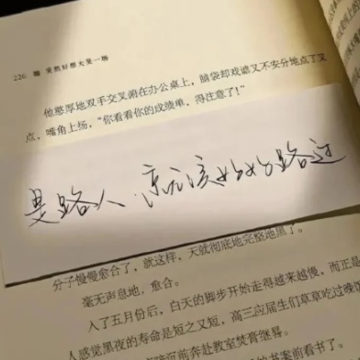 226 突然好想大哭一场
他憨厚地双手交叉搁在办公桌上，脑袋却戏谑又不安分地点了又
点，嘴角上扬，“你看看你的成绩单，得注意了！”
是路人 就应该好好路过
分子慢慢愈合了，就这样，天就彻底地完整地黑了。
毫无声息地，愈合。
入了五月份后，白天的脚步开始走得越来越慢，而正是
人感觉黑夜的寿命是短之又短，高三应届生们草草吃过晚饭
前奔赴教室焚膏继晷。
前看书了。